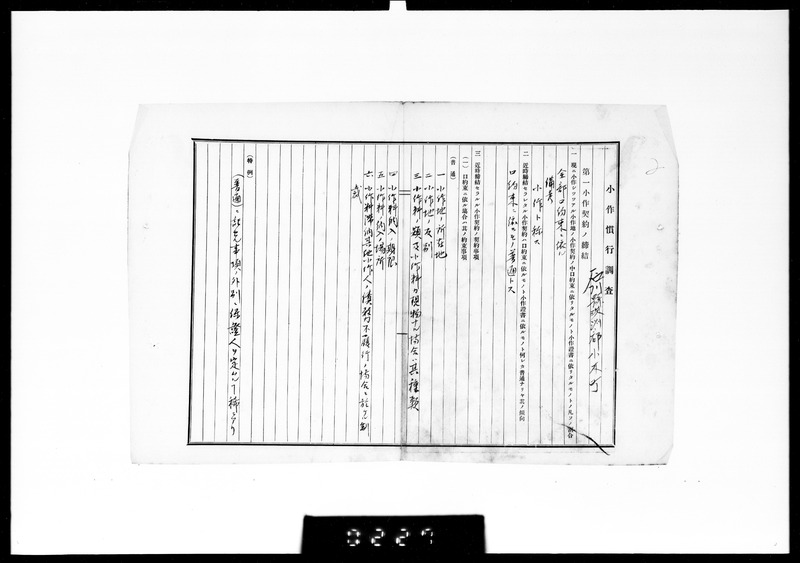 小作慣行調査
第一 小作契約ノ締結
石川縣 郡小木町
一 現ニ小作シツツアル小作地ノ小作契約ノ中口約束ニ依リタルモノト小作證書ニ依リタルモノトノ凡ソノ割合
全部口約束ニ依ル
備考
小作ト稱ス
二 近時締結セラレタル小作契約ハ口約束ニ依ルモノト小作證書ニ依ルモノト何レカ普通ナリヤ其ノ傾向
口約束ニ依ルモノ普通トス
三 近時締結セラルル小作契約ノ契約事項
(一) 口約束ニ依ル場合ハ其ノ約束事項
(普通)
一 小作地ノ所在地
二 小作地ノ反別
三 小作料ノ額及小作料カ現物ナル場合ハ其種類
四 小作料納入ノ期限
五 小作料納入場所
六 小作料滯納其他小作人ノ債務不履行ノ場合ニ於ケル制
裁
(特例)
(普通)ニ記シタル事項ノ外別ニ保證人ヲ定ムル事稀ニアリ
0227